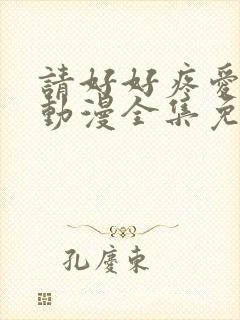 請好好疼愛
動漫全集免
孔慶東